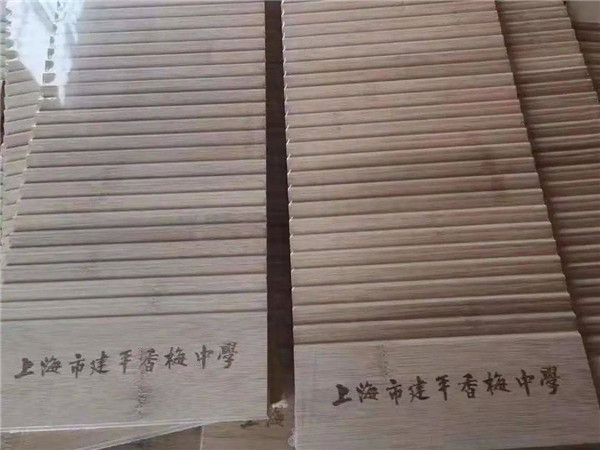 上海市建平香梅中學
上海市建平香梅中學
上海